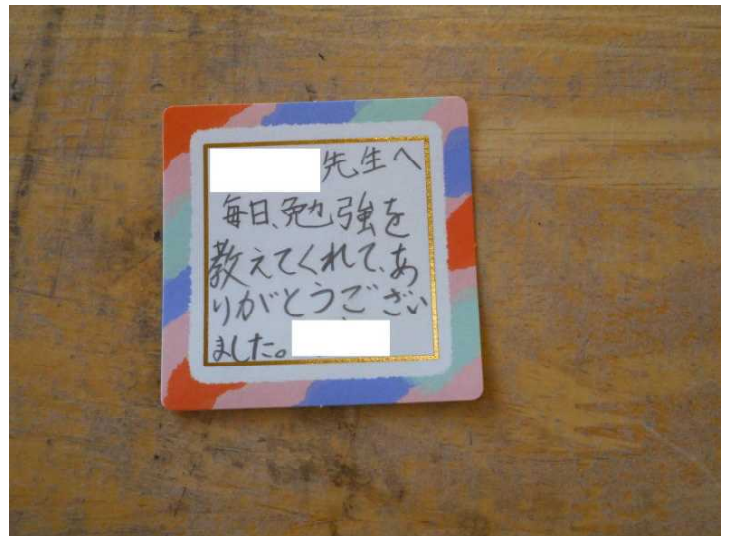 先生へ
毎日、勉強を
教えてくれて、あ
りがとうござい
ました。